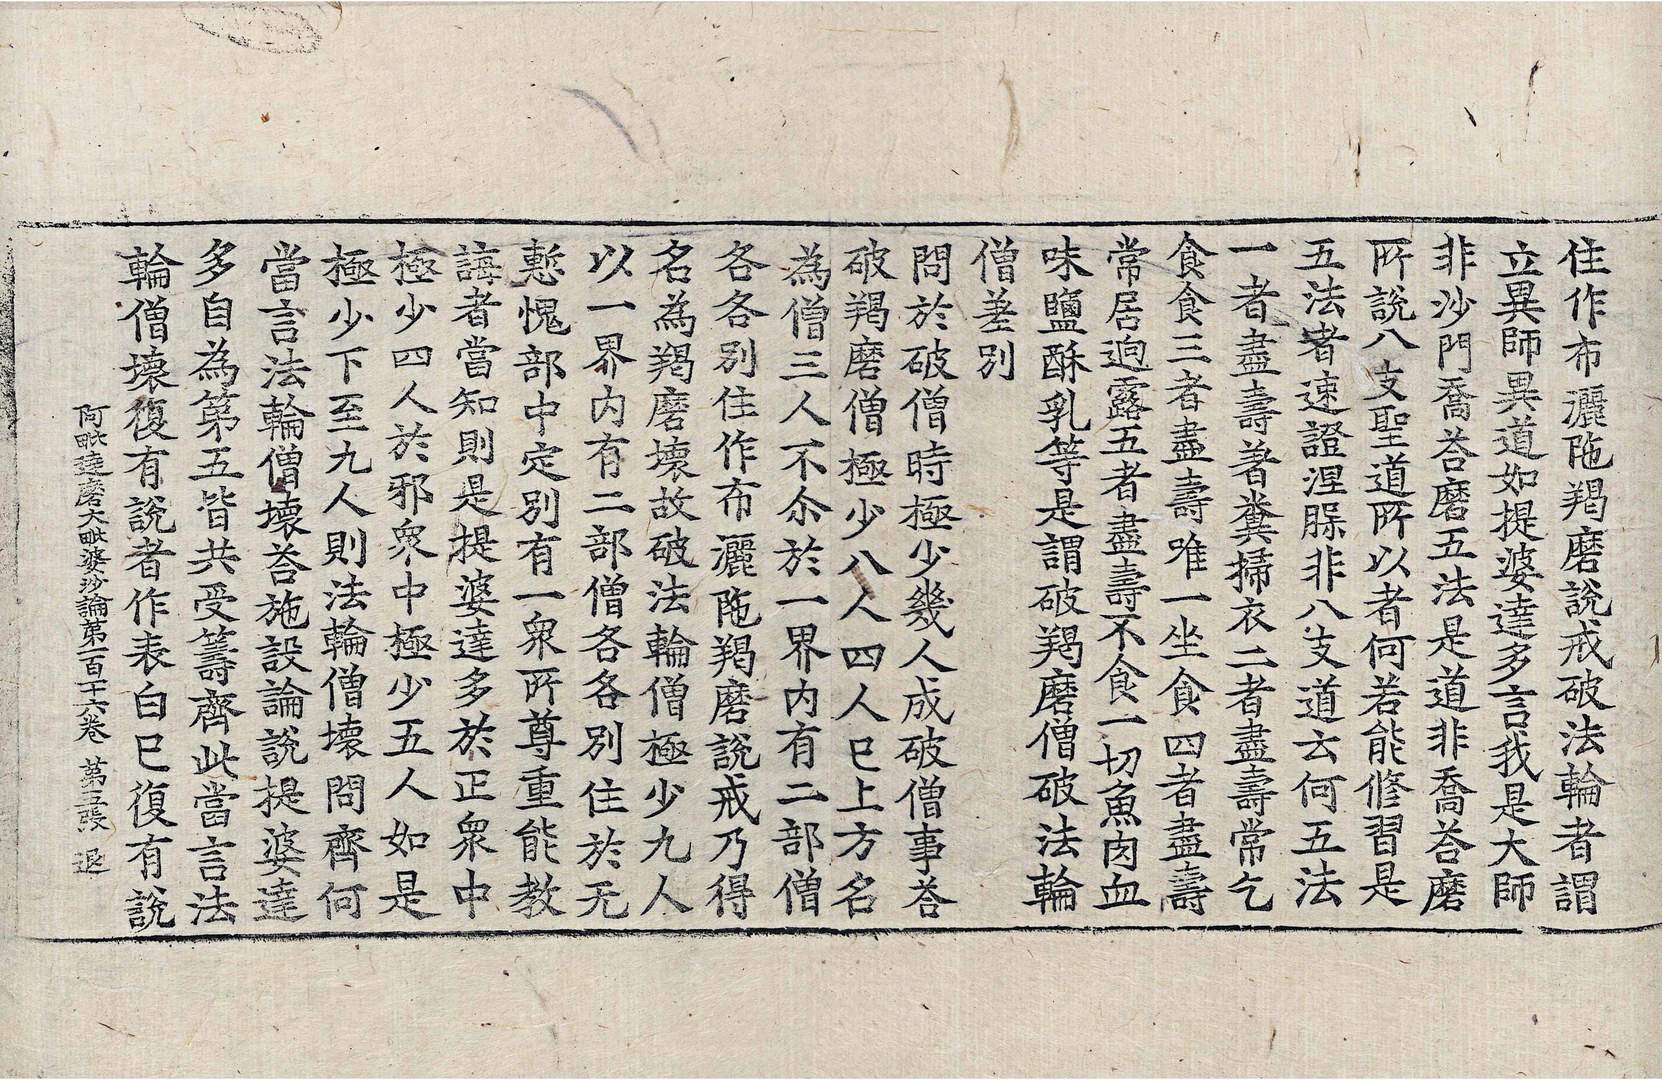 住作布灑陁羯磨說戒破法輪者謂
立異師異道如提婆達多言我是大師
非沙門喬荅磨五法是道非喬荅磨
所說八支聖道所以者何若能修習是
五法者速證涅槃非八支道云何五法
一者盡壽著糞掃衣二者盡壽常乞
食食三者盡壽唯一坐食四者盡壽
常居逈露五者盡壽不食一切魚肉血
味鹽酥乳等是謂破羯磨僧破法輪
僧差別
問於破僧時極少幾人成破僧事荅
破羯磨僧極少八人四人已上方名
為僧三人不尒於一界内有二部僧
各各別住作布灑陁羯磨說戒乃得
名為羯磨壞故破法輪僧極少九人
以一界内有二部僧各各別住於无
慙愧部中定別有一衆所尊重能教
誨者當知則是提婆達多於正衆中
極少四人於邪衆中極少五人如是
極少下至九人則法輪僧壞問齊何
當言法輪僧壞荅施設論說提婆達
多自為第五皆共受籌齊此當言法
輪僧壞復有說者作表白已復有說
阿毗達磨大毗婆沙論第一百十六卷 第五張 退